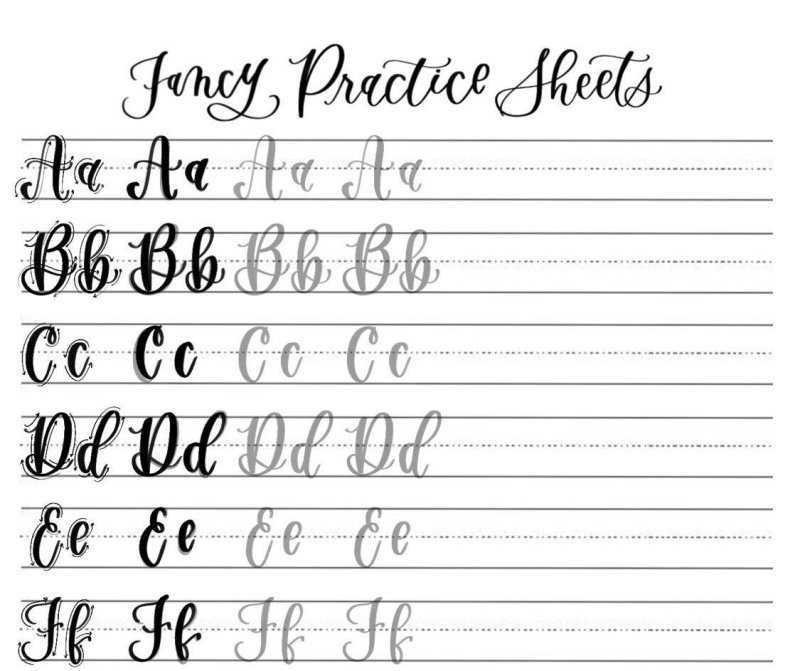 Fancy Practice Sheets
Aa Aa Aa Aa
Bb Bb Bb Bb
Cc Cc Cc Cc
Dd Dd Dd Dd
Ee Ee Ee Ee
Ff Ff Ff Ff